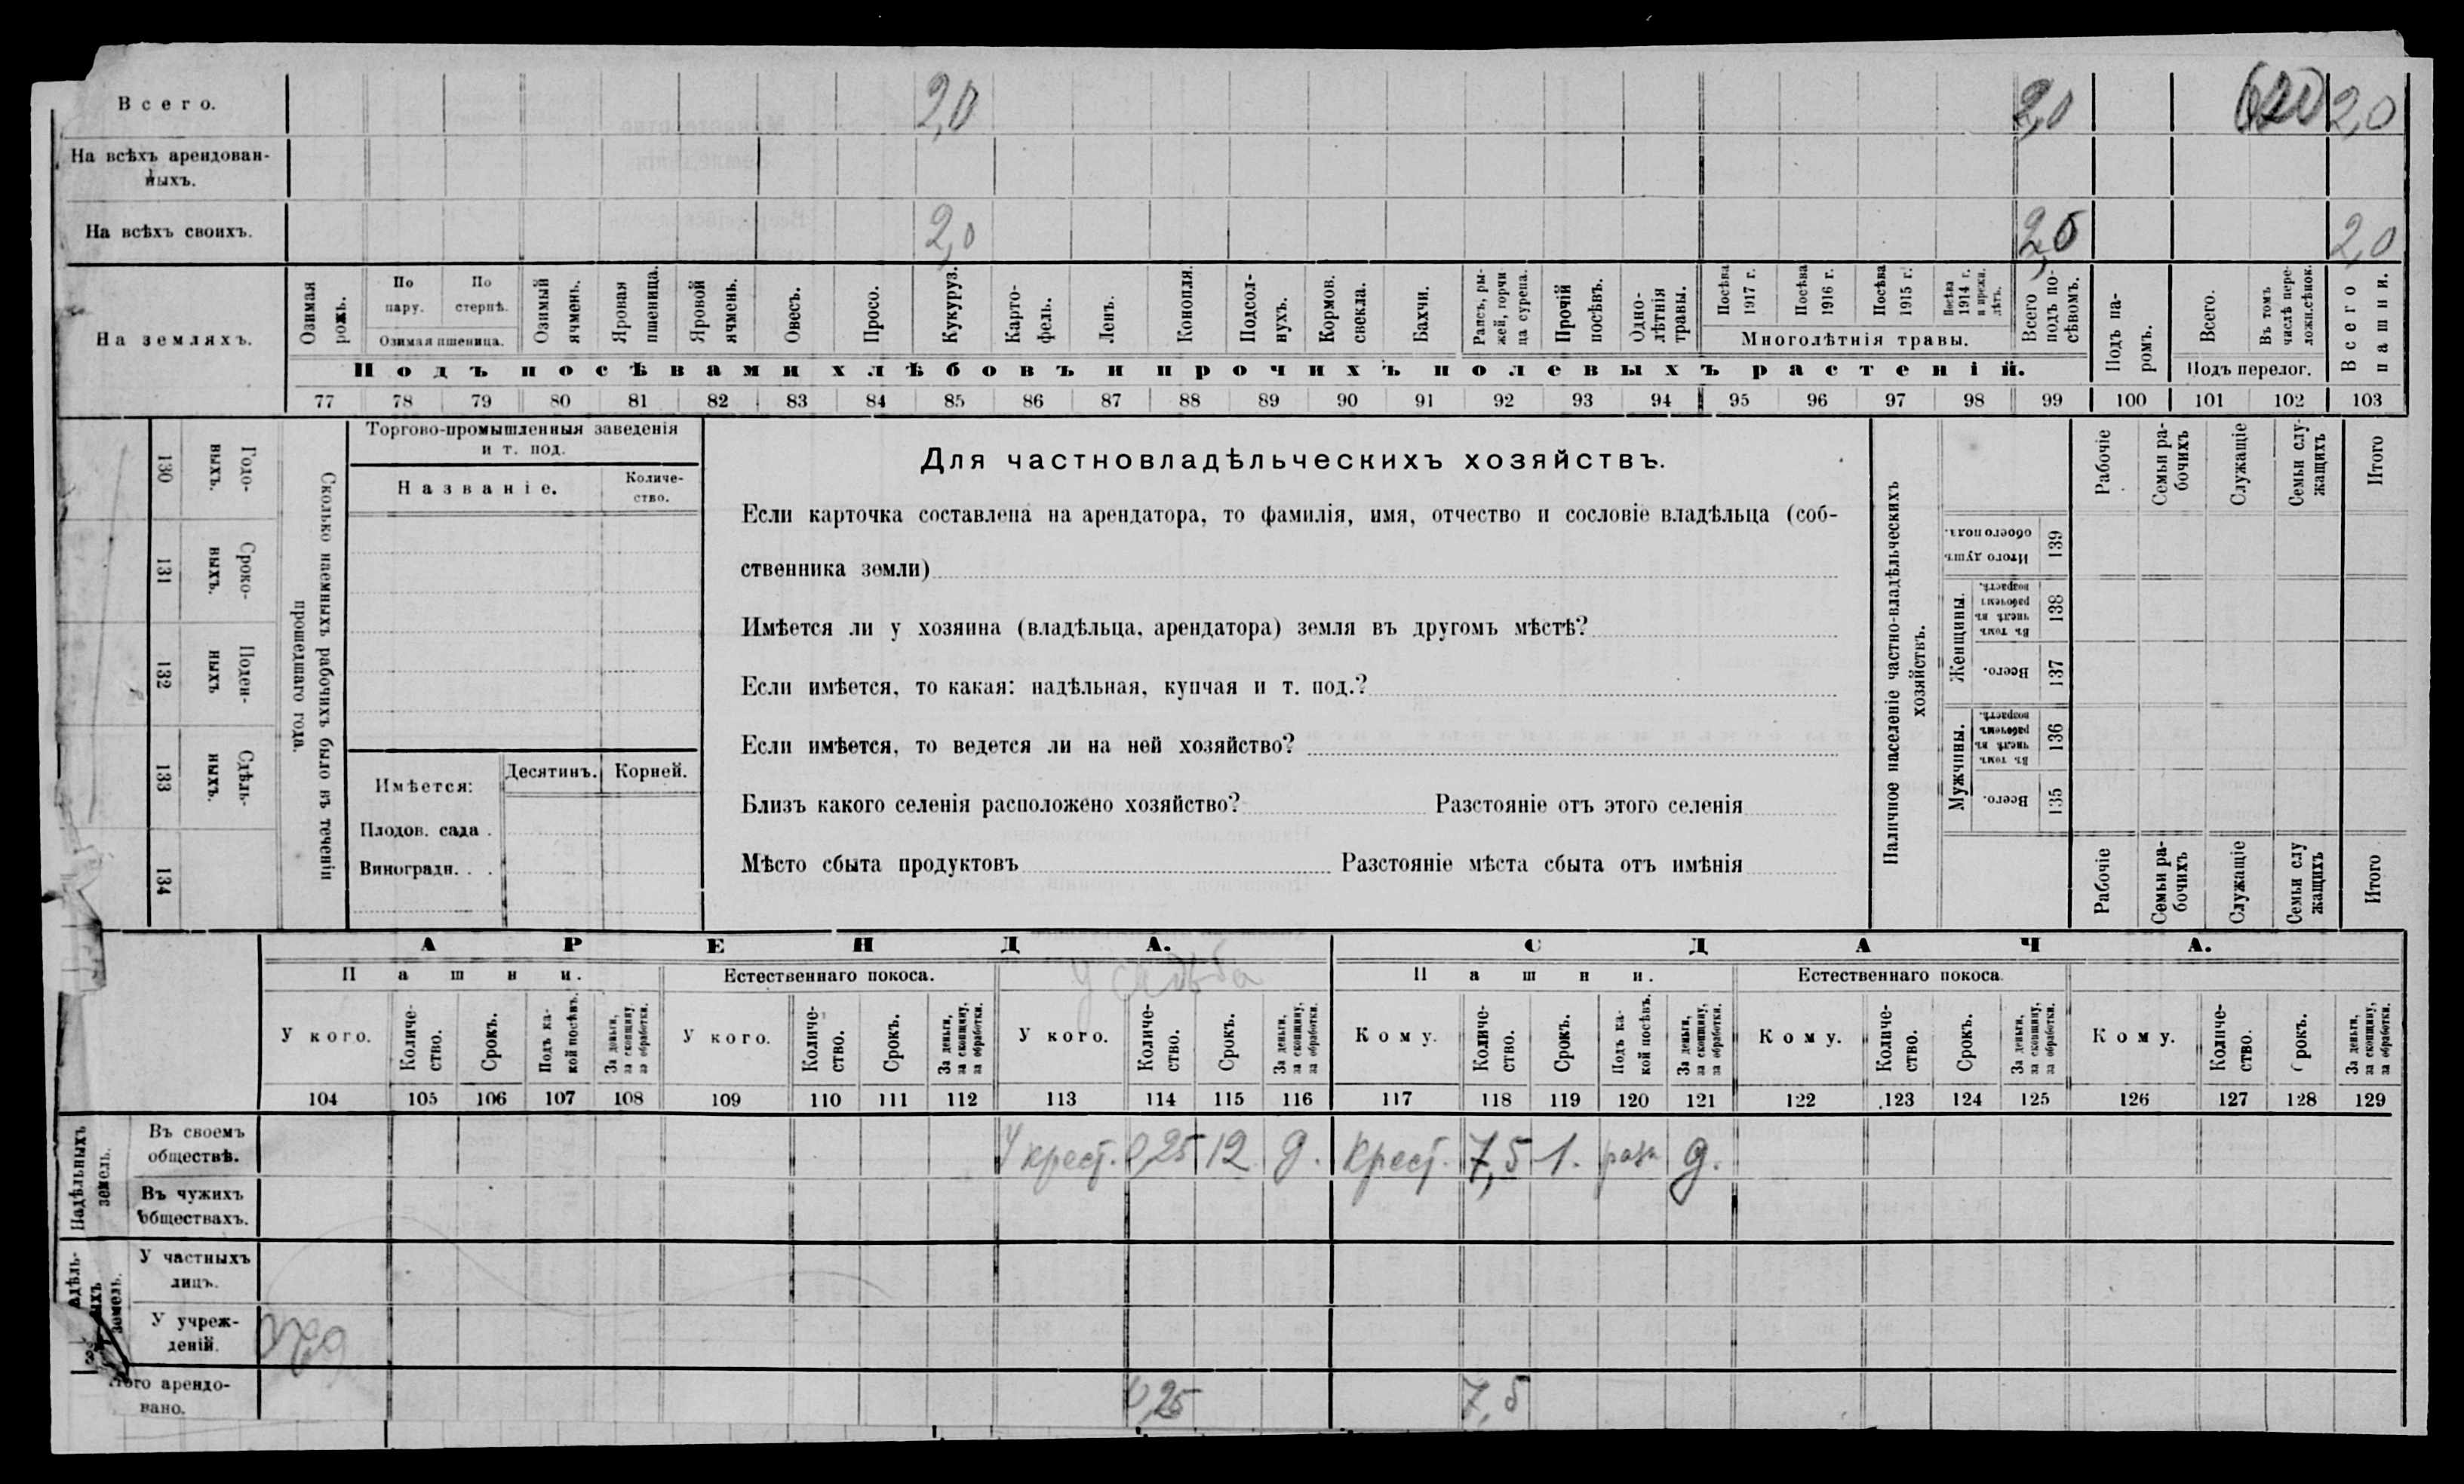 Всего. 2,0 2,0 2,0
На всѣхъ арендован-
ныхъ.
На всѣхъ своихъ. 2,0 2,0 2,0
На земляхъ.
Озимая рожь.
По пару.
По стернѣ.
Озимая пшеница.
Озимый ячмень.
Яровая пшеница.
Яровой ячмень.
Овесъ.
Просо.
Кукуруз.
Карто-
фель.
Ленъ.
Конопля.
Подсол-
нухъ.
Кормов. свекла.
Бахчи.
Рапсъ, ры-
жей, горчи-
ца сурепа.
Прочій посѣвъ.
Одно-
лѣтнія травы.
Посѣва 1917 г.
Посѣва 1916 г.
Посѣва 1915 г.
Посѣва 1914 г. и прежн. лѣтъ.
Многолѣтнія травы.
Всего подъ по-
сѣвомъ.
Подъ посѣвами хлѣбовъ и прочихъ полевыхъ растеній.
Подъ па-
ромъ.
Всего.
Въ томъ числѣ пере-
ложн.сѣнок.
Подъ перелог.
Всего пашни.
77 78 79 80 81 82 83 84 85 86 87 88 89 90 91 92 93 94 95 96 97 98 99 100 101 102 103
130 Годо-
выхъ.
131 Сроко-
выхъ.
132 Поден-
ныхъ
133 Сдѣль-
ныхъ.
134
Сколько наемныхъ рабочихъ было въ теченіи
прошедшаго года.
Торгово-промышленныя заведенія
и т. под.
Названіе.
Количе-
ство.
Имѣется: Десятинъ. Корней.
Плодов. сада .
Виноградн. . .
Для частновладѣльческихъ хозяйствъ.
Если карточка составлена на арендатора, то фамилія, имя, отчество и сословіе владѣльца (соб-
ственника земли)
Имѣется ли у хозяина (владѣльца, арендатора) земля въ другомъ мѣстѣ?
Если имѣется, то какая: надѣльная, купчая и т. под.?
Если имѣется, то ведется ли на ней хозяйство?
Близъ какого селенія расположено хозяйство? Разстояніе отъ этого селенія
Мѣсто сбыта продуктовъ Разстояніе мѣста сбыта отъ имѣнія
Наличное населеніе частно-владѣльческихъ
хозяйствъ.
Рабочіе
Семьи ра-
бочихъ
Служащіе
Семьи слу-
жащихъ
Итого
Итого душъ обоего пола. 139
Женщины.
Въ томъ числѣ въ рабочемъ возрастѣ. 138
Всего. 137
Мужчины.
Въ томъ числѣ въ рабочемъ возрастѣ. 136
Всего. 135
Рабочіе
Семьи ра-
бочихъ
Служащіе
Семьи слу
жащихъ
Итого
АРЕНДА. СДАЧА.
Пашни. Естественнаго покоса. Усадьба Пашни. Естественнаго покоса.
У кого.
Количе-
ство.
Срокъ.
Подъ ка-
кой посѣвъ.
За деньги,
за скопщину,
за обработки.
У кого.
Количе-
ство.
Срокъ.
За деньги,
за скопщину,
за обработки.
У кого.
Количе-
ство.
Срокъ.
За деньги,
за скопщину,
за обработки.
Кому.
Количе-
ство.
Срокъ.
Подъ ка-
кой посѣвъ.
За деньги,
за скопщину,
за обработки.
Кому.
Количе-
ство.
Срокъ.
За деньги,
за скопщину,
за обработки.
Кому.
Количе-
ство.
Срокъ.
За деньги,
за скопщину,
за обработки.
104 105 106 107 108 109 110 111 112 113 114 115 116 117 118 119 120 121 122 123 124 125 126 127 128 129
Надѣльныхъ
земель.
Въ своемъ
обществѣ.
У крест. 0,25 12 д. Крест. 7,5 1. разн д.
Въ чужихъ
обществахъ.
земель.
У частныхъ
лицъ.
У учреж-
деній.
арендо-
вано.
0,25 7,5